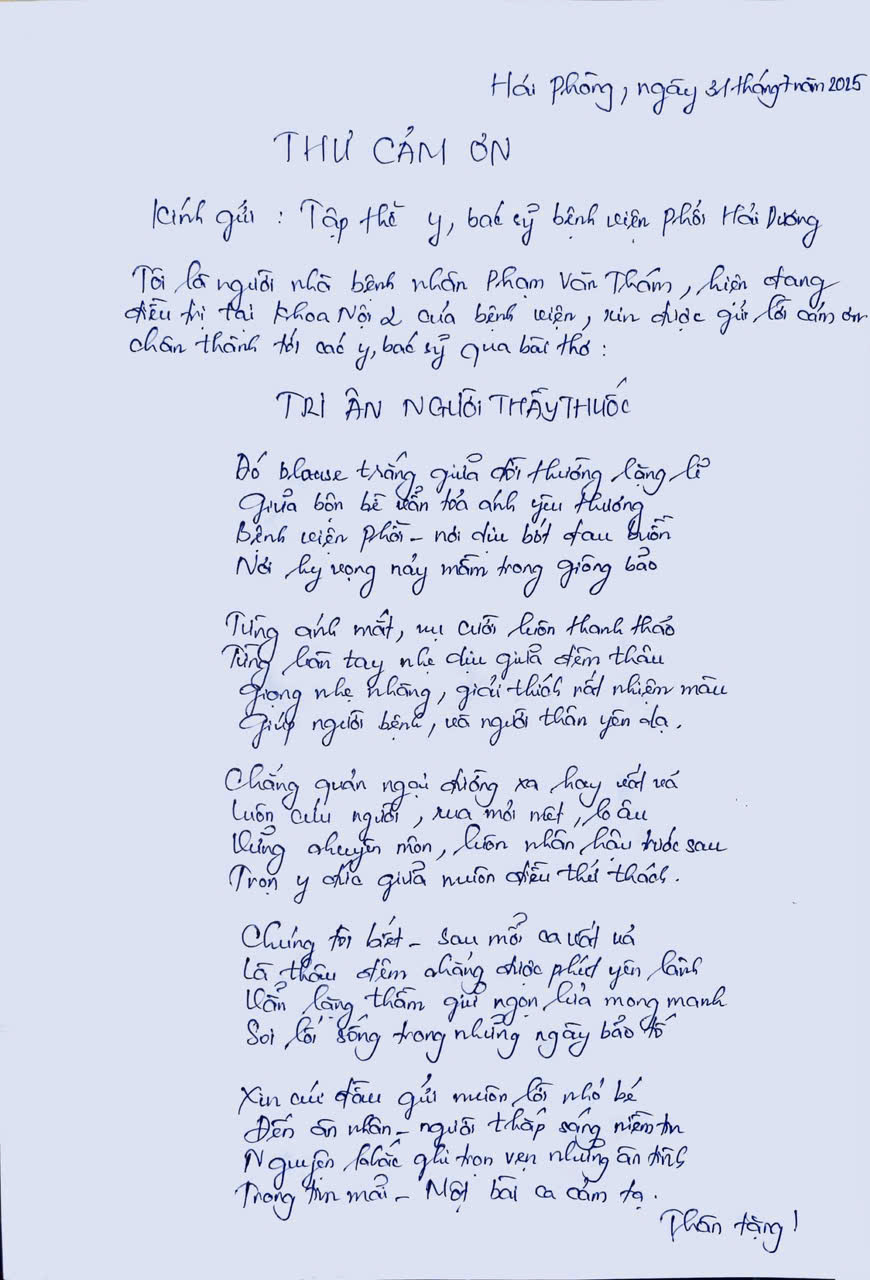 Hải Phòng, ngày 31 tháng 7 năm 2025
THƯ CẢM ƠN
Kính gửi : Tập thể y, bác sỹ bệnh viện Phổi Hải Dương
Tôi là người nhà bệnh nhân Phạm Văn Thắm, hiện đang
điều trị tại khoa Nội 2 của bệnh viện, xin được gửi lời cảm ơn
chân thành tới các y, bác sỹ qua bài thơ :
TRI ÂN NGƯỜI THẦY THUỐC
Đó blause trắng giữa đời thường lặng lẽ
Giữa bộn bề vẫn tỏa ánh yêu thương
Bệnh viện Phổi - nơi dịu bớt đau buồn
Nơi hy vọng nảy mầm trong giông bão
Từng ánh mắt, nụ cười luôn thanh thảo
Từng bàn tay nhẹ dịu giữa đêm thâu
Giọng nhẹ nhàng, giải thích rất nhiệm mầu
Giúp người bệnh, và người thân yên dạ.
Chẳng quản ngại đường xa hay vất vả
Luôn cứu người, xua mỏi mệt, lo âu
Vững chuyên môn, luôn nhân hậu trước sau
Trọn y đức giữa muôn điều thử thách.
Chúng tôi biết - sau mỗi ca vất vả
Là thâu đêm chẳng được phút yên lành
Vẫn lặng thầm giữ ngọn lửa mong manh
Soi lối sống trong những ngày bão tố
Xin cúi đầu gửi muôn lời nhỏ bé
Đến ân nhân - người thắp sáng niềm tin
Nguyện khắc ghi trọn vẹn những ân tình
Trong tim mãi - Một bài ca cảm tạ.
Thân tặng !